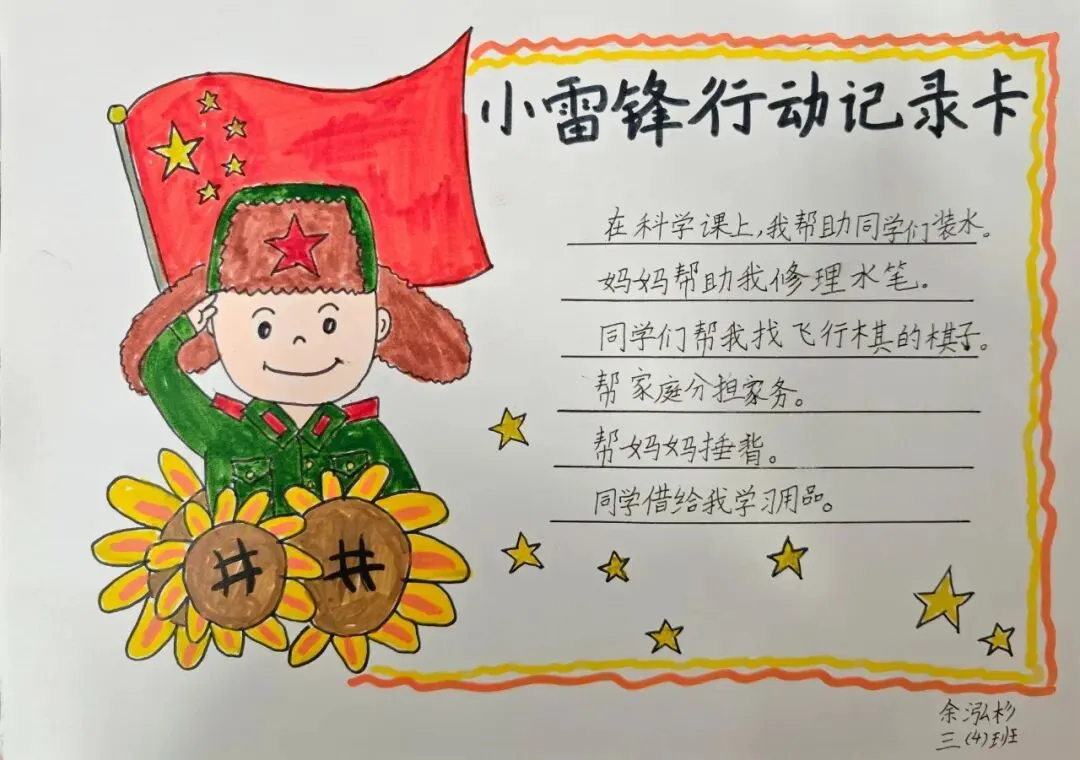 小雷锋行动记录卡
在科学课上,我帮助同学们装水。
妈妈帮助我修理水笔。
同学们帮我找飞行棋的棋子。
帮家庭分担家务。
帮妈妈捶背。
同学借给我学习用品。
# #
余泓杉
三(4)班